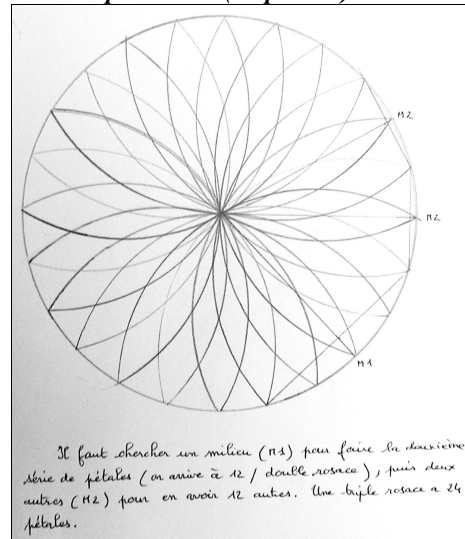 M2
M2
M1
Il faut chercher un milieu (M1) pour faire la deuxième
série de pétales (on arrive à 12 / double rosace), puis deux
autres (M2) pour en avoir 12 autres. Une triple rosace a 24
pétales.